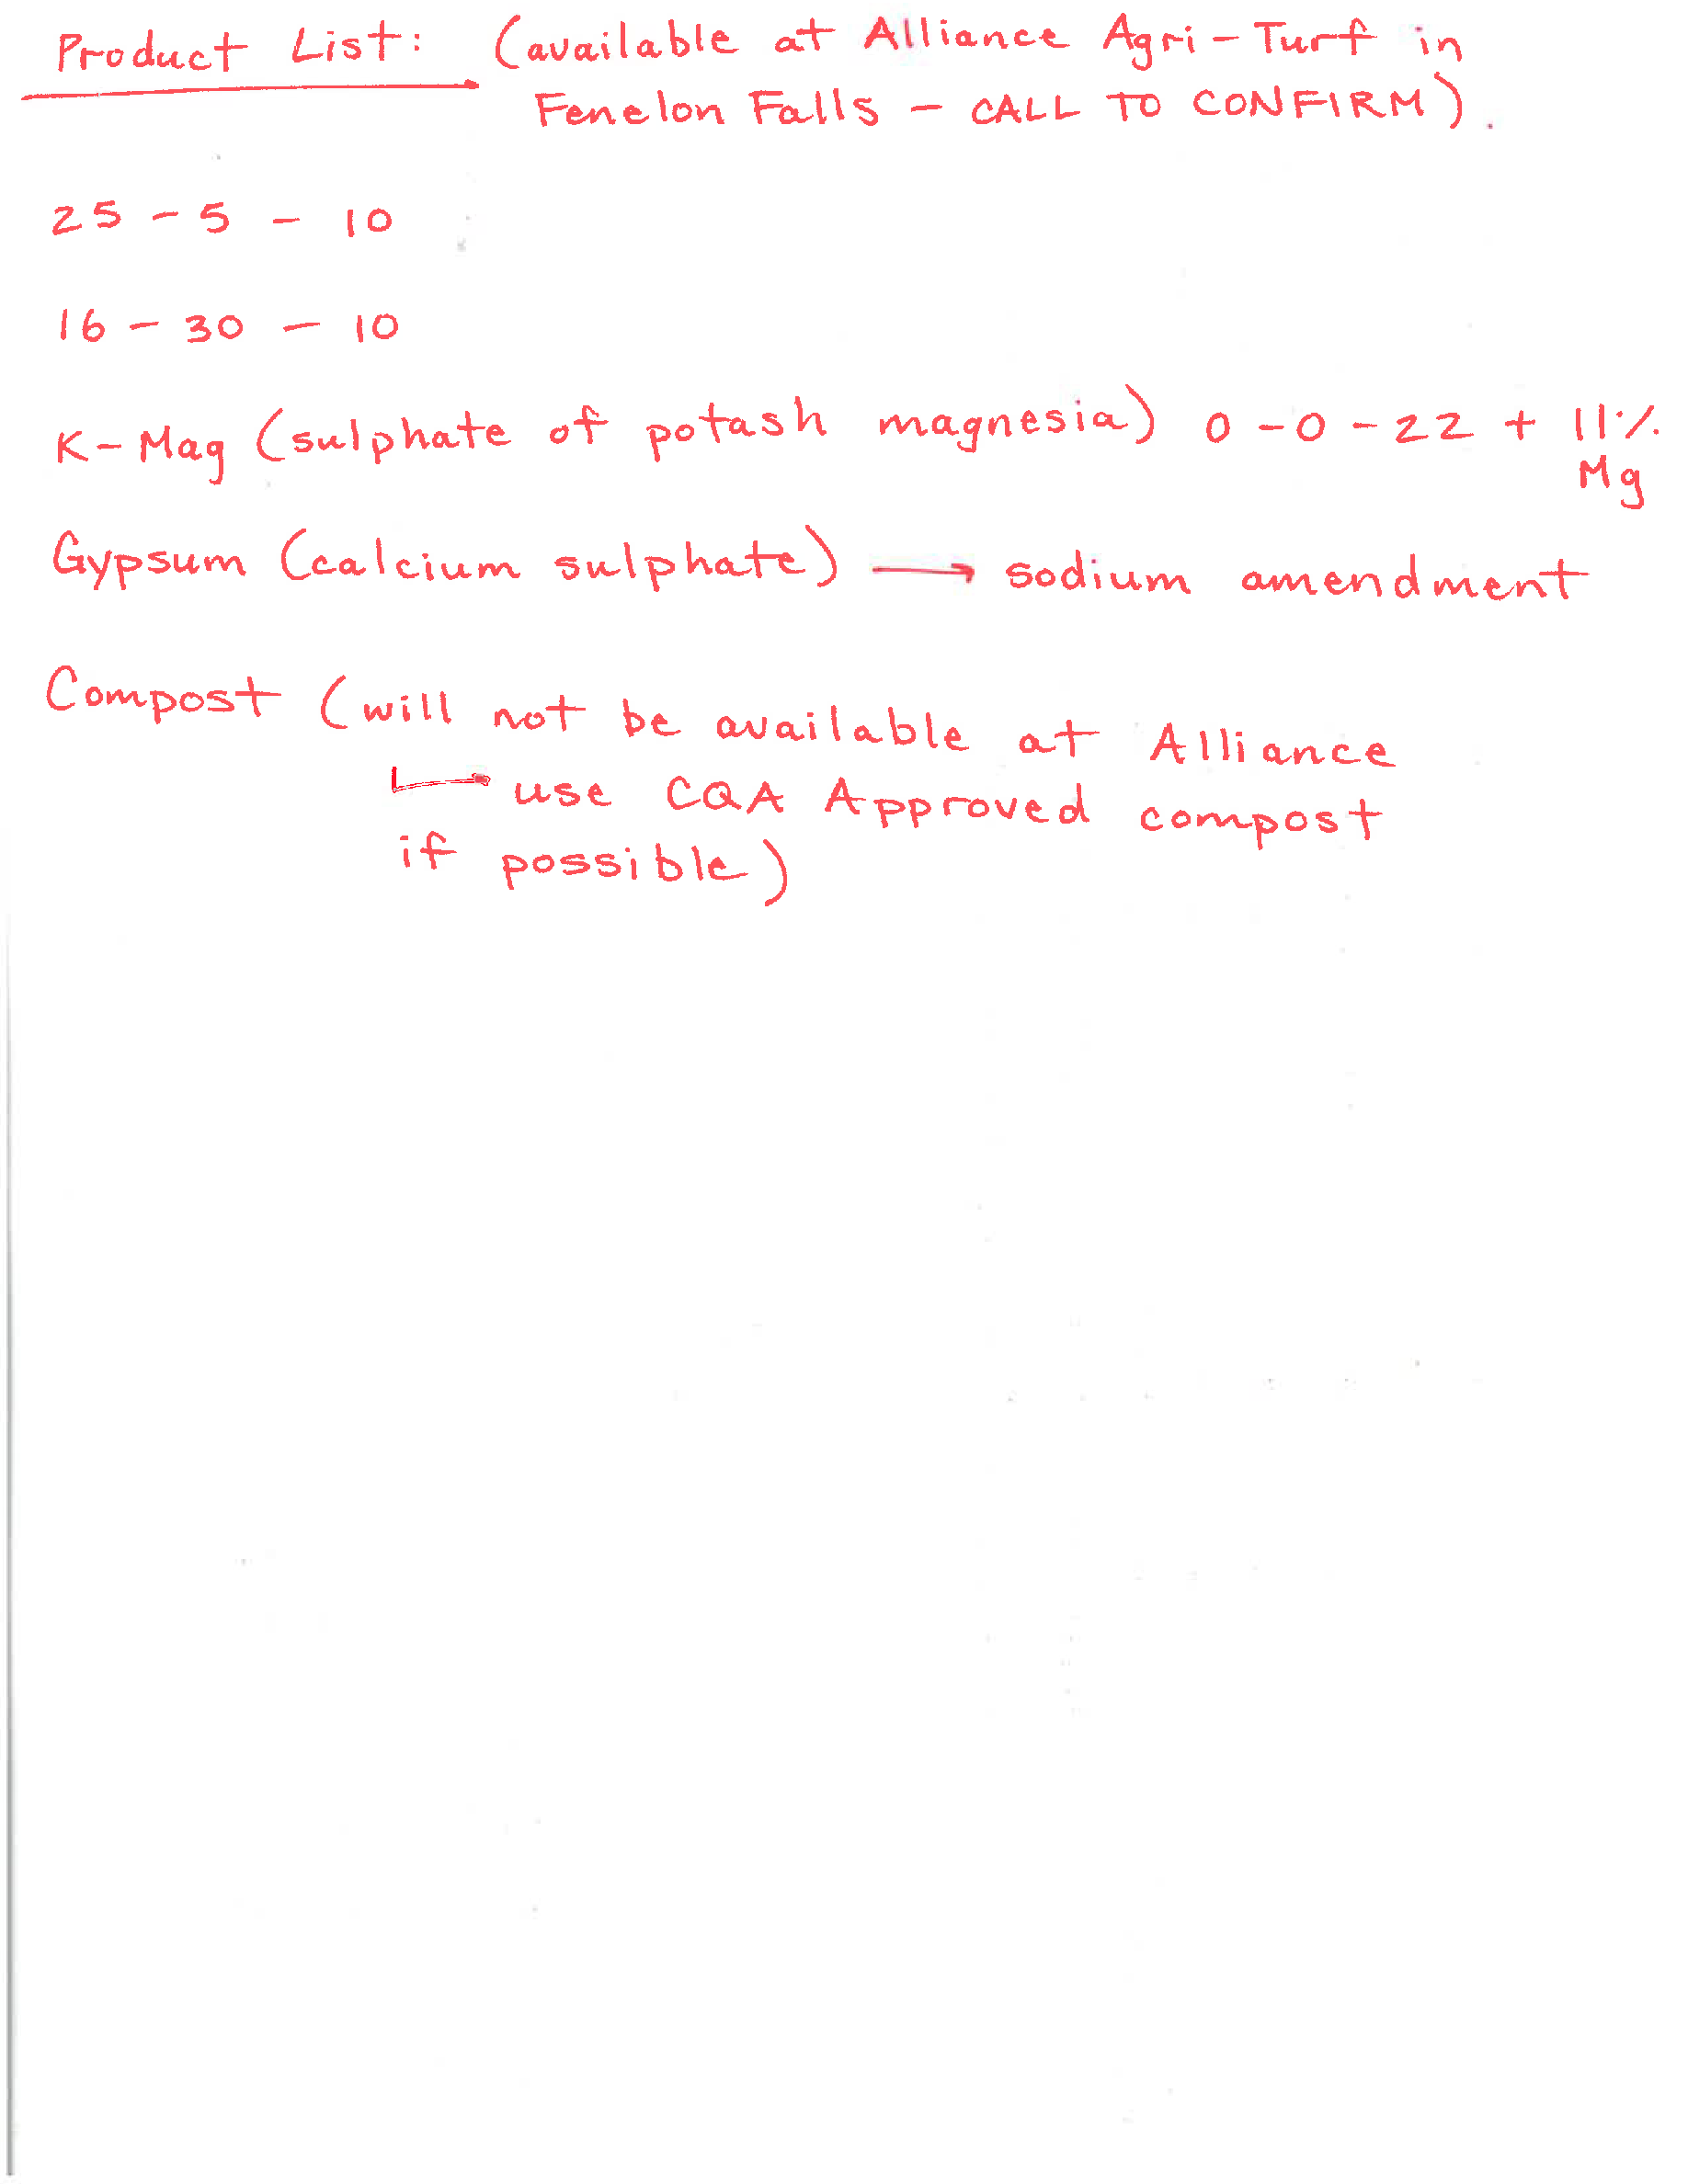 Product List: (available at Alliance Agri-Turf in
Fenelon Falls - CALL TO CONFIRM).
25 - 5 - 10
16 - 30 - 10
K-Mag (sulphate of potash magnesia) 0-0-22 + 11%
Mg
Gypsum (calcium sulphate) → sodium amendment
Compost (will not be available at Alliance
↳ use CQA Approved compost
if possible)